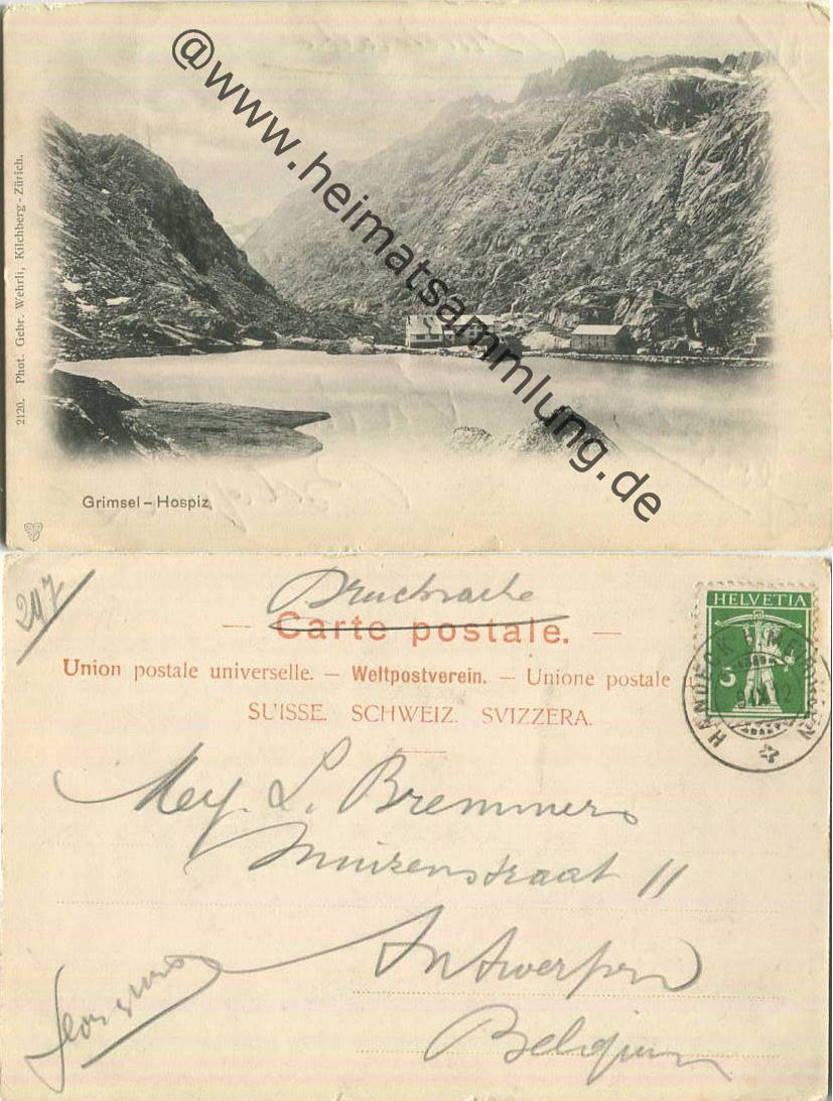 @www.heimatsammlung.de
2120. Phot. Gebr. Wehrli, Kilchberg - Zürich.
Grimsel – Hospiz
247
Drucksache
— Carte postale. —
Union postale universelle. — Weltpostverein. — Unione postale
SUISSE. SCHWEIZ. SVIZZERA.
HELVETIA
5
HANDECK
Mej. L. Bremmers
Muizenstraat 11
Antwerpen
Belgium